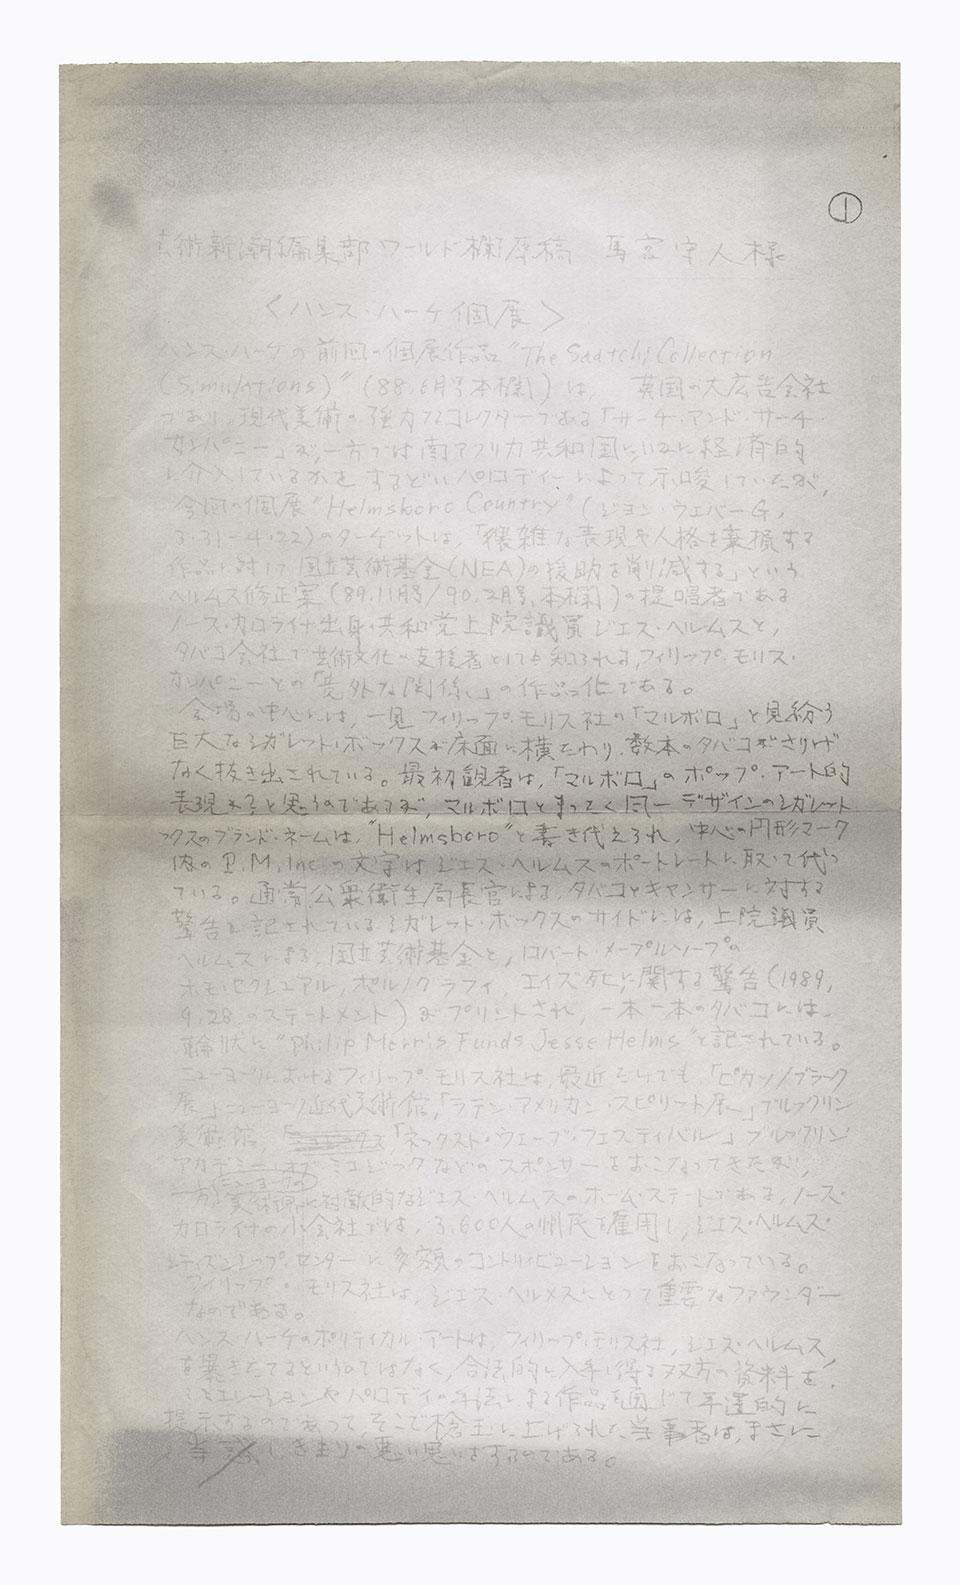 ①
芸術新潮編集部ワールド欄原稿 馬宮守人様
〈ハンス・ハーケ個展〉
ハンス・ハーケの前回の個展作品"The Saatchi Collection
(Simulations)"(88.6月号本欄)は, 英国の大広告会社
であり,現代美術の強力なコレクターである「サーチ・アンド・サーチ・
カンパニー」が,一方では南アフリカ共和国にいかに経済的
に介入しているかをするどいパロディーによって示唆していたが,
今回の個展"Helmsboro Country"(ジョン・ウエバーG,
3.31-4.22)のターゲットは,「猥雑な表現や人格を棄損する
作品に対して国立芸術基金(NEA)の援助を削減する」という
ヘルムス修正案(89.11月号/90.2月号,本欄)の提唱者である
ノース・カロライナ出身,共和党上院議員ジエス・ヘルムスと,
タバコ会社で芸術文化の支援者としても知られる,フィリップ・モリス・
カンパニーとの「意外な関係」の作品化である。
会場の中心には,一見フィリップ・モリス社の「マルボロ」と見紛う
巨大なシガレット・ボックスが床面に横たわり,数本のタバコがさりげ
なく抜き出されている。最初観者は,「マルボロ」のポップ・アート的
表現かと思うのであるが,マルボロとまったく同一デザインのシガレット
ックスのブランド・ネームは,"Helmsboro"と書き代えられ,中心の円形マーク
内のP.M.Inc.の文字はジエス・ヘルムスのポートレートに取って代っ
ている。通常公衆衛生局長官による,タバコとキャンサーに対する
警告が記されているシガレット・ボックスのサイドには,上院議員
ヘルムスによる,国立芸術基金と,ロバート・メープルソープの
ホモ・セクシュアル,ポルノグラフィ,エイズ死に関する警告(1989,
9.28.のステートメント)がプリントされ,一本一本のタバコには
輪状に"Philip Morris Funds Jesse Helms"と記されている。
ニューヨークにおけるフィリップ・モリス社は,最近だけでも,「ピカソ/ブラーク
展」ニューヨーク近代美術館,「ラテン・アメリカン・スピリット展」ブルックリン
美術館,「ネックスト・ウェーブ・フェスティバル」ブルックリン
アカデミー・オブ・ミュジックなどのスポンサーをおこなってきたが,
一方,(ニューヨークの)美術界に対敵的なジエス・ヘルムスのホーム・ステートである,ノース・
カロライナの小会社では,3,600人の州民を雇用し,ジエス・ヘルムス・
シティズンシップ・センターに多額のコントリビューションをおこなっている。
フィリップ・モリス社は,ジエス・ヘルメスにとって重要なファウンダー
なのである。
ハンス・ハーケのポリティカル・アートは,フィリップ・モリス社,ジエス・ヘルムス
を暴きたてるというのではなく,合法的に入手し得る双方の資料を,
シミュレーションやパロディの手法による作品を通じて
提示するのであって,そこで槍玉に上げられた当事者は,まさに
きまりの悪い思いをするのである。